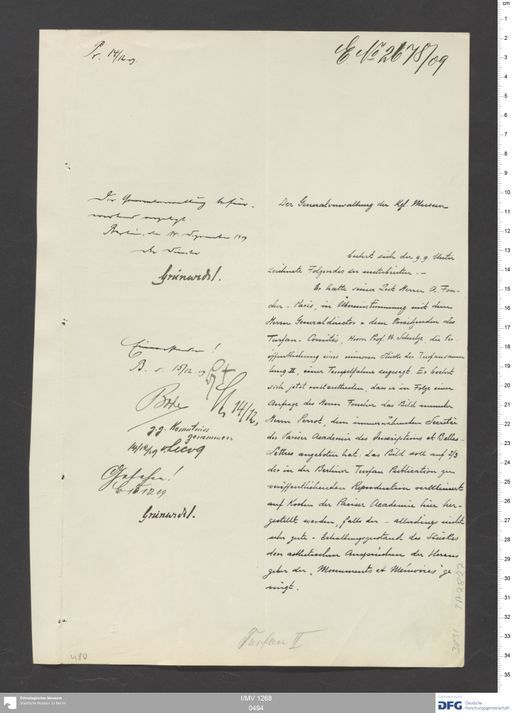 Pr. 14/12 09.
E. No 2678/09
Der Generalverwaltung
vorgelegt
Berlin, den 14 Dezember 1909
Grünwedel.
Einverstanden!
B. d. 15/12. 09
Bode
14/12,
z. g. Kenntnis
genommen
Gesehen!
16.12.09
Grünwedel.
Der Generalverwaltung der Kgl. Museen
beehrt sich der g. g. Unter
zeichnete Folgendes zu unterbreiten. —
Es hatte seiner Zeit Herrn A. Fou-
cher - Paris, in Übereinstimmung mit dem
Herrn Generaldirector & dem Vorsitzenden des
Turfan-Comités, Herrn Prof. W. Schulze die Ver
öffentlichung eines Stücks der Turfansamm
lung II, einer Tempelfahne zugesagt. Er beehrt
sich jetzt mitzuteilen, dass er in Folge einer
Anfrage des Herrn Foucher das Bild nunmehr
Herrn Perrot, dem immerwährenden Secretär
der Pariser Academie des Inscriptions et Belles-
Lettres angeboten hat. Das Bild soll auf 2/3
der in der Berliner Turfan Publication zu
veröffentlichenden Reproduction verkleinert
auf Kosten der Pariser Academie hier her-
gestellt werden, falls der – allerdings nicht
sehr gute – Erhaltungszustand des Stückes
den aesthetischen Ansprüchen der Heraus
geber der „Monuments et Mémoires" ge
nügt.
Turfan II
480
Ethnologisches Museum
Staatliche Museen zu Berlin
I/MV 1268
0494
DFG
Deutsche
Forschungsgemeinschaft